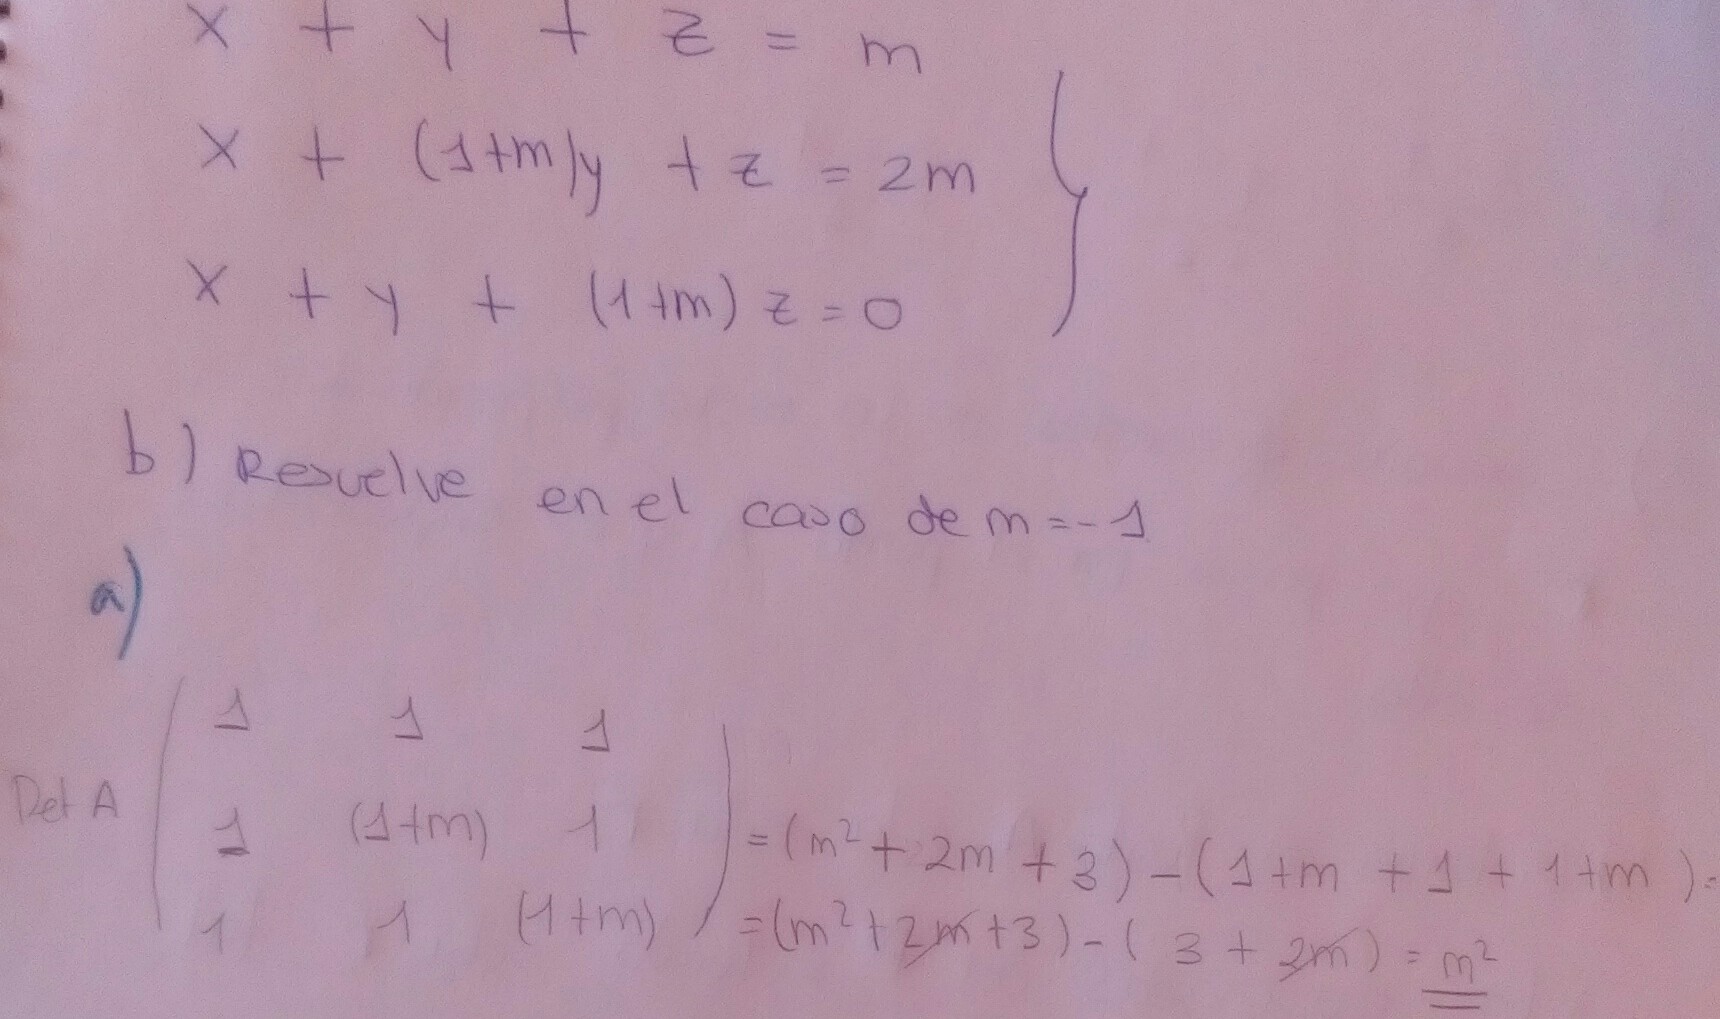 x + y + z = m
x + (1+m)y + z = 2m
x + y + (1+m) z = 0
b) Resuelve en el caso de m = -1
a)
1 1 1
Det A 1 (1+m) 1 = (m² + 2m + 3) - (1+m + 1 + 1+m) =
1 1 (1+m) = (m² + 2m + 3) - (3 + 2m) = m²